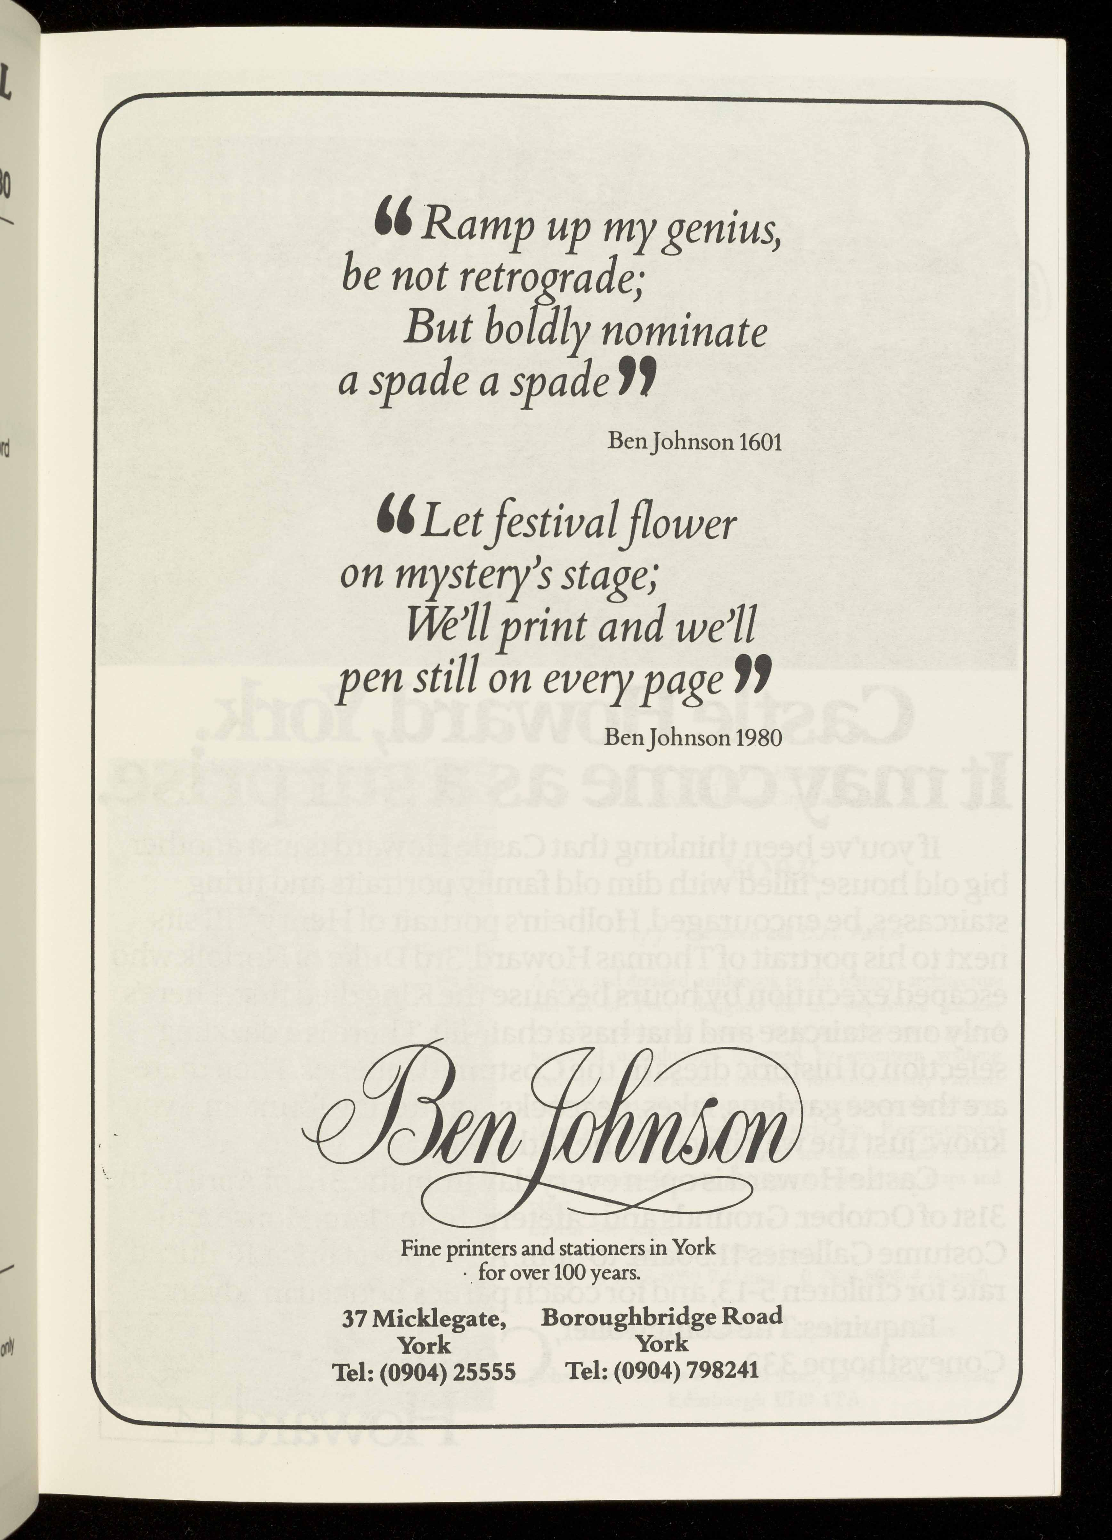 “Ramp up my genius,
be not retrograde;
But boldly nominate
a spade a spade”
Ben Johnson 1601
“Let festival flower
on mystery’s stage;
We’ll print and we’ll
pen still on every page”
Ben Johnson 1980
Ben Johnson
Fine printers and stationers in York
for over 100 years.
37 Micklegate,
York
Tel: (0904) 25555
Boroughbridge Road
York
Tel: (0904) 798241
only